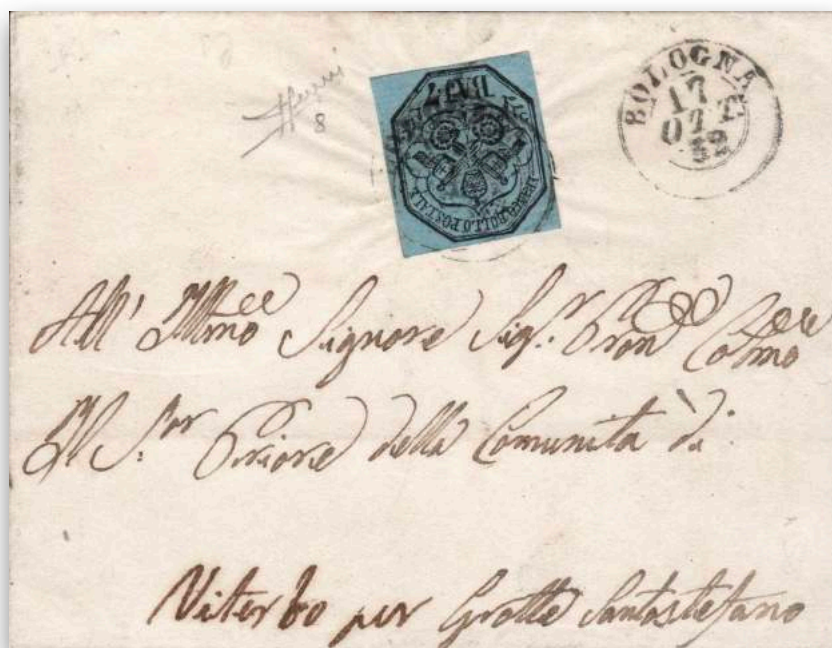 8
BAJ 7
FRANCO BOLLO POSTALE
BOLOGNA
17
OTT
52
All' Illmo Signore Sig.r Pron Colmo
Il S.or Priore della Comunità di
Viterbo per Grotte Santostefano